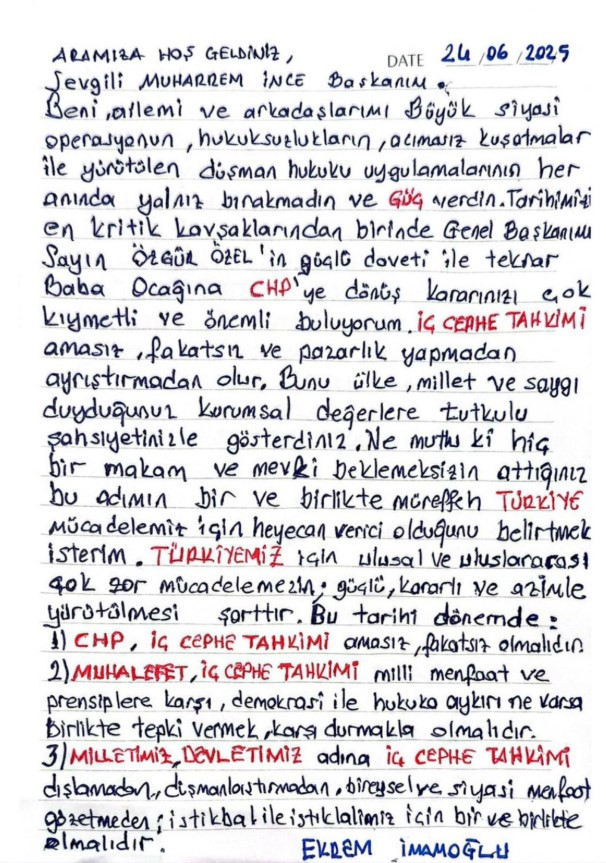 ARAMIZA HOŞ GELDİNİZ, DATE 24/06/2025
Sevgili MUHARREM İNCE Başkanım.
Beni, ailemi ve arkadaşlarımı Büyük siyasi
operasyonun, hukuksuzlukların, acımasız kuşatmalar
ile yürütülen düşman hukuku uygulamalarının her
anında yalnız bırakmadın ve GÜÇ verdin. Tarihimizi
en kritik kavşaklarından birinde Genel Başkanım
Sayın ÖZGÜR ÖZEL'in güçlü daveti ile tekrar
Baba Ocağına CHP'ye dönüş kararınızı çok
kıymetli ve önemli buluyorum. İÇ CEPHE TAHKİMİ
amasız, fakatsız ve pazarlık yapmadan
ayrıştırmadan olur. Bunu ülke, millet ve saygı
duyduğunuz kurumsal değerlere tutkulu
şahsiyetinizle gösterdiniz. Ne mutlu ki hiç
bir makam ve mevki beklemeksizin attığınız
bu adımın bir ve birlikte müreffeh TÜRKİYE
mücadelemiz için heyecan verici olduğunu belirtmek
isterim. TÜRKİYEMİZ için ulusal ve uluslararası
çok zor mücadelemezin; güçlü, kararlı ve azimle
yürütülmesi şarttır. Bu tarihi dönemde:
1) CHP, İÇ CEPHE TAHKİMİ amasız, fakatsız olmalıdır.
2) MUHALEFET, İÇ CEPHE TAHKİMİ milli menfaat ve
prensiplere karşı, demokrasi ile hukuka aykırı ne varsa
Birlikte tepki vermek, karşı durmakla olmalıdır.
3) MİLLETİMİZ, DEVLETİMİZ adına İÇ CEPHE TAHKİMİ
dışlamadan, düşmanlaştırmadan, bireysel ve siyasi menfaat
gözetmeden; istikbal ile istiklalimiz için bir ve birlikte
olmalıdır.
EKREM İMAMOĞLU